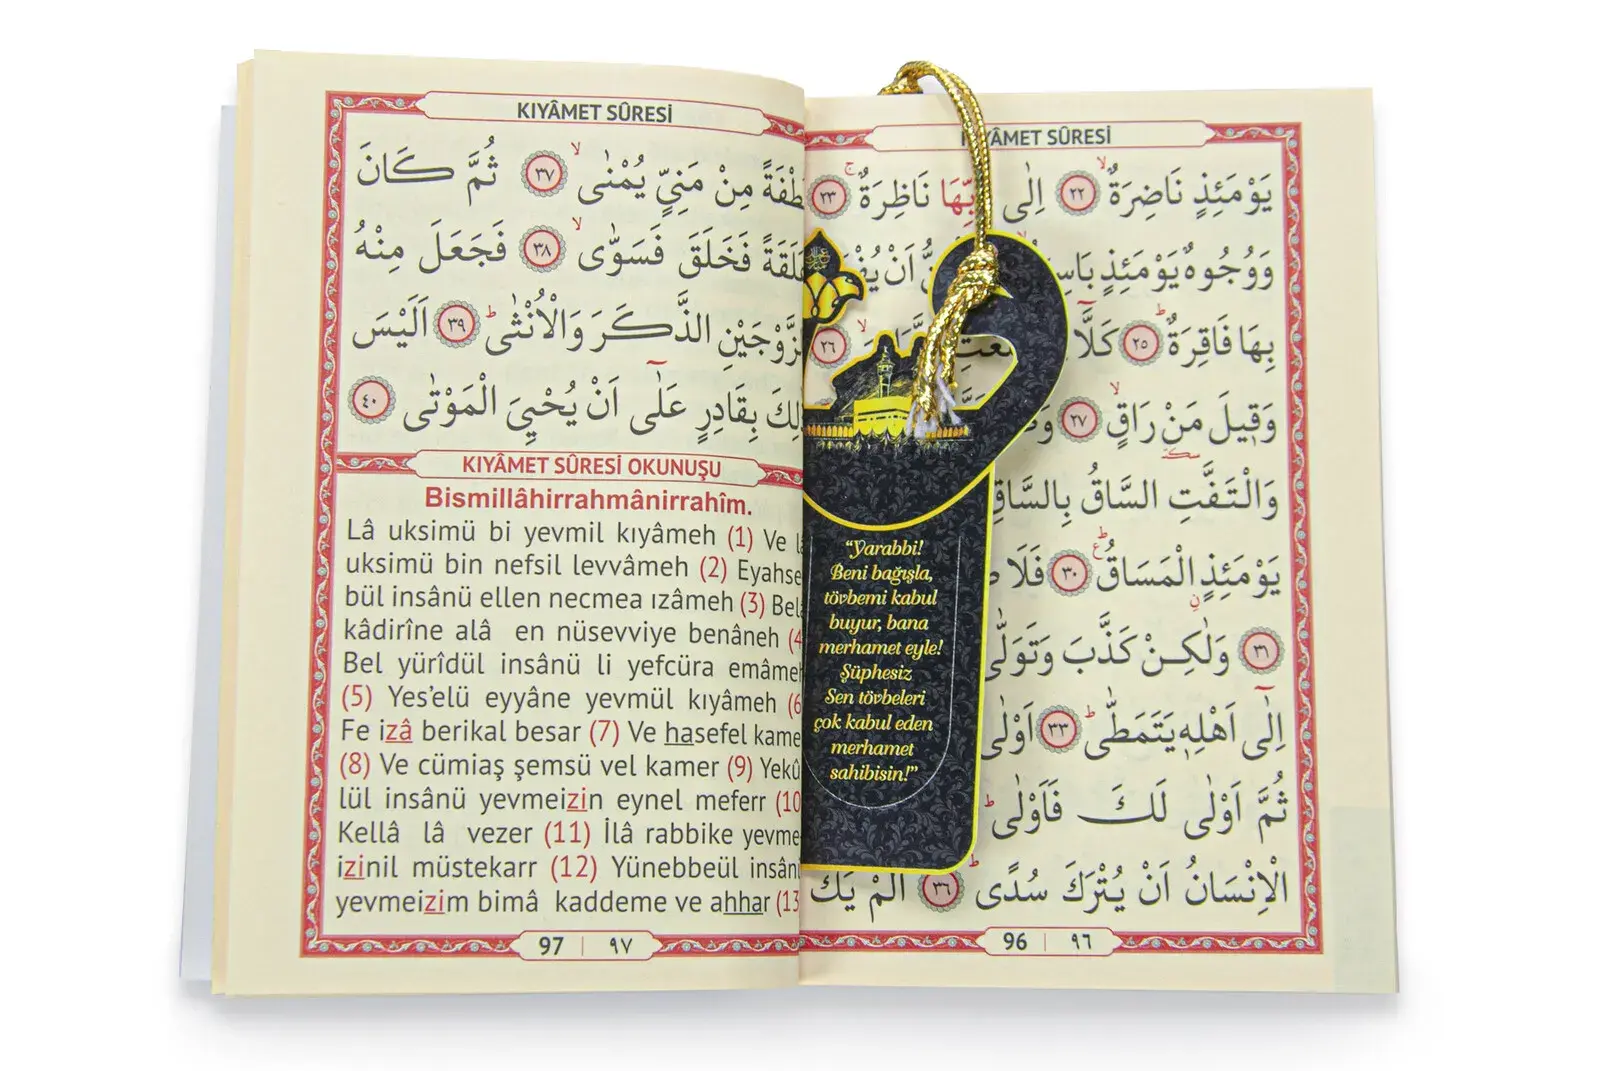 KIYÂMET SÛRESİ
يَوْمَئِذٍ نَاضِرَةٌۙ ﴿٢٢﴾ اِلٰى نَاظِرَةٌۚ ﴿٢٣﴾
وَوُجُوهٌ يَوْمَئِذٍ اَنْ
بِهَا فَاقِرَةٌۜ ﴿٢٥﴾ كَلَّٓا ﴿٢٦﴾
وَق۪يلَ مَنْ رَاقٍۙ ﴿٢٧﴾
وَالْتَفَّتِ السَّاقُ بِالسَّاقِ
يَوْمَئِذٍ الْمَسَاقُۜ ﴿٣٠﴾ فَلَا
﴿٣١﴾ وَلٰكِنْ كَذَّبَ وَتَوَلّٰى
اِلٰٓى اَهْلِه۪ يَتَمَطّٰىۜ ﴿٣٣﴾ اَوْلٰى
ثُمَّ اَوْلٰى لَكَ فَاَوْلٰىۜ
الْاِنْسَانُ اَنْ يُتْرَكَ سُدًىۜ ﴿٣٦﴾ اَلَمْ يَكُ
96 | ٩٦
“Yarabbi!
Beni bağışla,
tövbemi kabul
buyur, bana
merhamet eyle!
Şüphesiz
Sen tövbeleri
çok kabul eden
merhamet
sahibisin!”
KIYÂMET SÛRESİ
مِنْ مَنِيٍّ يُمْنٰىۙ ﴿٣٧﴾ ثُمَّ كَانَ
فَخَلَقَ فَسَوّٰىۙ ﴿٣٨﴾ فَجَعَلَ مِنْهُ
الزَّوْجَيْنِ الذَّكَرَ وَالْاُنْثٰىۜ ﴿٣٩﴾ اَلَيْسَ
بِقَادِرٍ عَلٰٓى اَنْ يُحْيِيَ الْمَوْتٰى ﴿٤٠﴾
KIYÂMET SÛRESİ OKUNUŞU
Bismillâhirrahmânirrahîm.
Lâ uksimü bi yevmil kıyâmeh (1) Ve
uksimü bin nefsil levvâmeh (2) Eyahse
bül insânü ellen necmea ızâmeh (3) Bel
kâdirîne alâ en nüsevviye benâneh (4
Bel yürîdül insânü li yefcüra emâmeh
(5) Yes’elü eyyâne yevmül kıyâmeh (6
Fe izâ berikal besar (7) Ve hasefel kame
(8) Ve cümiaş şemsü vel kamer (9) Yekû
lül insânü yevmeizin eynel meferr (10
Kellâ lâ vezer (11) İlâ rabbike yevme
izinil müstekarr (12) Yünebbeül insân
yevmeizim bimâ kaddeme ve ahhar (13
97 | ٩٧